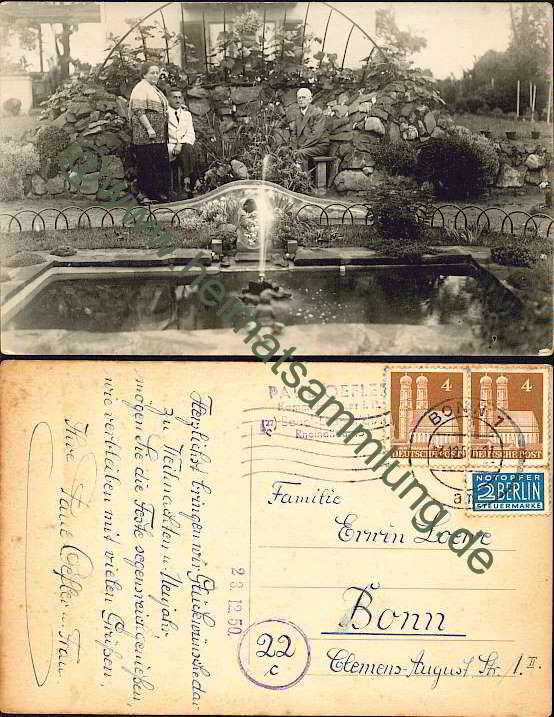 www.heimatsammlung.de
PAUL OEFLER
4
4
DEUTSCHE POST
DEUTSCHE POST
BONN 1
NOTOPFER
2 BERLIN
STEUERMARKE
Herzlichst bringen wir Glückwünsche dar
zu Weihnachten u. Neujahr
mögen Sie die Feste segensreich genießen,
wie verbleiben mit vielen Grüßen,
Ihre Paul Oefler u. Frau.
23.12.50
22
c
Familie
Erwin Loewe
Bonn
Clemens-August Str. 1. II.